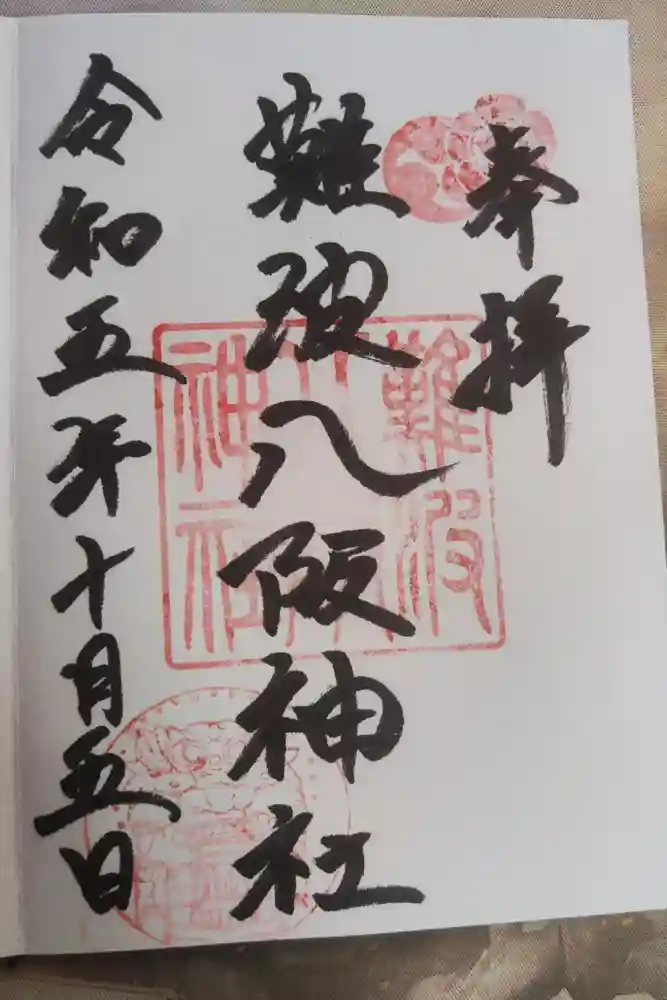 奉拝
難波八阪神社
令和五年十月五日
難波
神社